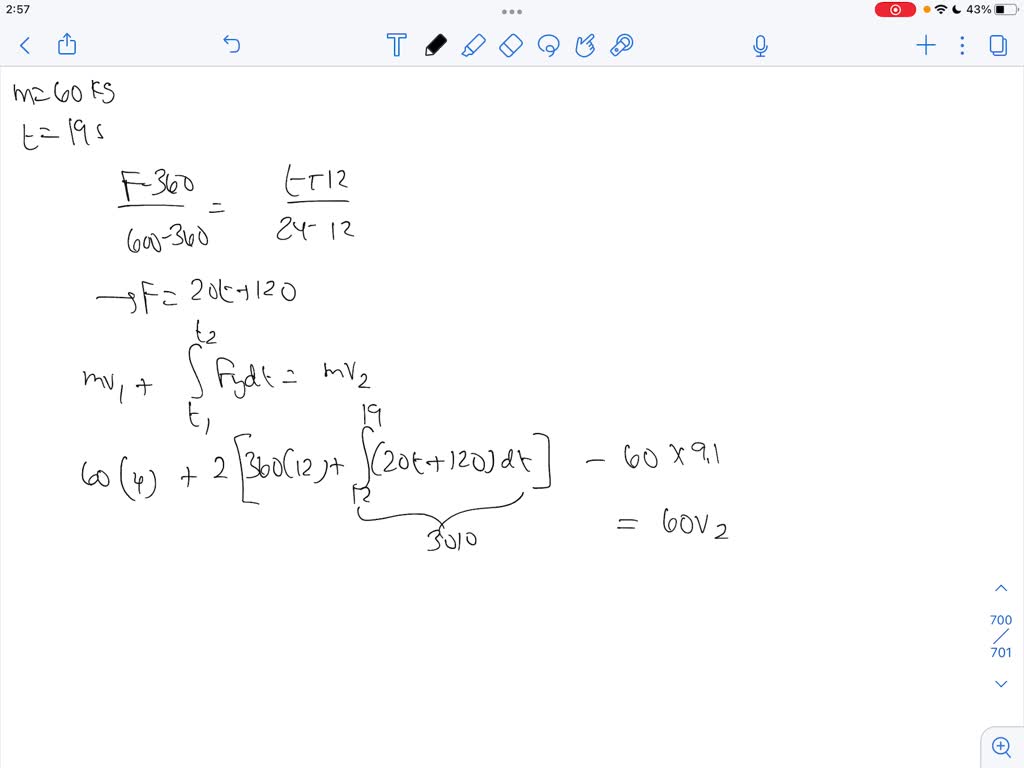 2:57
43%
m=60 kg
t=19s
F-360 / 600-360 = t-12 / 24-12
→F= 20t+120
mv₁ + ∫ t₁ t₂ Fydt = mv₂
60(4) + 2[360(12)+ ∫ 12 19 (20t+120)dt] - 60×9.1
3010
= 60v₂
700
701